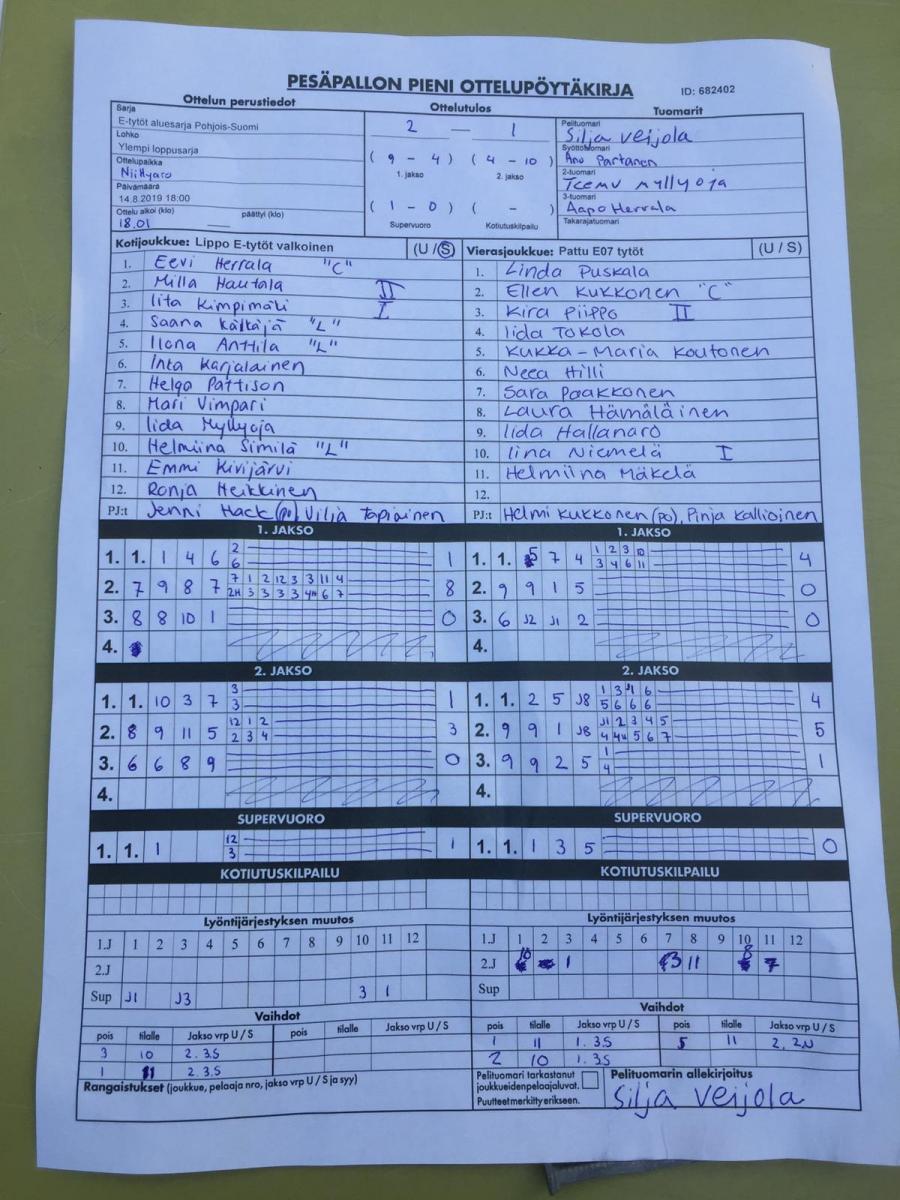 PESÄPALLON PIENI OTTELUPÖYTÄKIRJA
ID: 682402
Ottelun perustiedot
Ottelutulos
Tuomarit
Sarja
E-tytöt aluesarja Pohjois-Suomi
Lohko
Ylempi loppusarja
Ottelupaikka
Niittyaro
Päivämäärä
14.8.2019 18:00
Ottelu alkoi (klo) päättyi (klo)
18.01
2 — 1
( 9 - 4 ) ( 4 - 10 )
1. jakso 2. jakso
( 1 - 0 ) ( - )
Supervuoro Kotiutuskilpailu
Pelituomari
Silja Veijola
Syöttötuomari
Anu Partanen
2-tuomari
Teemu Myllyoja
3-tuomari
Aapo Herrala
Takarajatuomari
Kotijoukkue: Lippo E-tytöt valkoinen (U / S)
1. Eevi Herrala "C"
2. Milla Hautala II
3. Iita Kimpimäki I
4. Saana Kältäjä "L"
5. Ilona Anttila "L"
6. Inta Karjalainen
7. Helga Pattison
8. Mari Vimpari
9. Iida Myllyoja
10. Helmiina Similä "L"
11. Emmi Kivijärvi
12. Ronja Heikkinen
PJ:t Jenni Hack (po), Vilja Tapiainen
Vierasjoukkue: Pattu E07 tytöt (U / S)
1. Linda Puskala
2. Ellen Kukkonen "C"
3. Kira Piippo II
4. Iida Tokola
5. Kukka-Maria Koutonen
6. Neea Hilli
7. Sara Paakkonen
8. Laura Hämäläinen
9. Iida Hallanaro
10. Iina Niemelä I
11. Helmiina Mäkelä
12.
PJ:t Helmi Kukkonen (po), Pinja Kallioinen
1. JAKSO
1. 1. 1 4 6 2 1
6
2. 7 9 8 7 7 1 2 12 3 3 11 4 8
2H 3 3 3 3 4H 6 7
3. 8 8 10 1 0
4.
1. JAKSO
1. 1. 5 7 4 1 2 3 10 4
3 4 6 11
2. 9 9 1 5 0
3. 6 J2 J1 2 0
4.
2. JAKSO
1. 1. 10 3 7 3 1
3
2. 8 9 11 5 12 1 2 3
2 3 4
3. 6 6 8 9 0
4.
2. JAKSO
1. 1. 2 5 J8 1 3 J1 6 4
5 6 6 6
2. 9 9 1 J8 J1 2 3 4 5 5
4 4H 5 6 7
3. 9 9 2 5 1 1
4
4.
SUPERVUORO
1. 1. 1 12 1
3
SUPERVUORO
1. 1. 1 3 5 0
KOTIUTUSKILPAILU
KOTIUTUSKILPAILU
Lyöntijärjestyksen muutos
1.J 1 2 3 4 5 6 7 8 9 10 11 12
2.J
Sup J1 J3 3 1
Lyöntijärjestyksen muutos
1.J 1 2 3 4 5 6 7 8 9 10 11 12
2.J 10 1 3 11 8 7
Sup
Vaihdot
pois tilalle Jakso vrp U / S pois tilalle Jakso vrp U / S
3 10 2.3S
1 11 2.3S
Vaihdot
pois tilalle Jakso vrp U / S pois tilalle Jakso vrp U / S
1 11 1.3S 5 11 2.2U
2 10 1.3S
Rangaistukset (joukkue, pelaaja nro, jakso vrp U / S ja syy)
Pelituomari tarkastanut
joukkueidenpelaajaluvat.
Puutteet merkitty erikseen.
Pelituomarin allekirjoitus
Silja Veijola